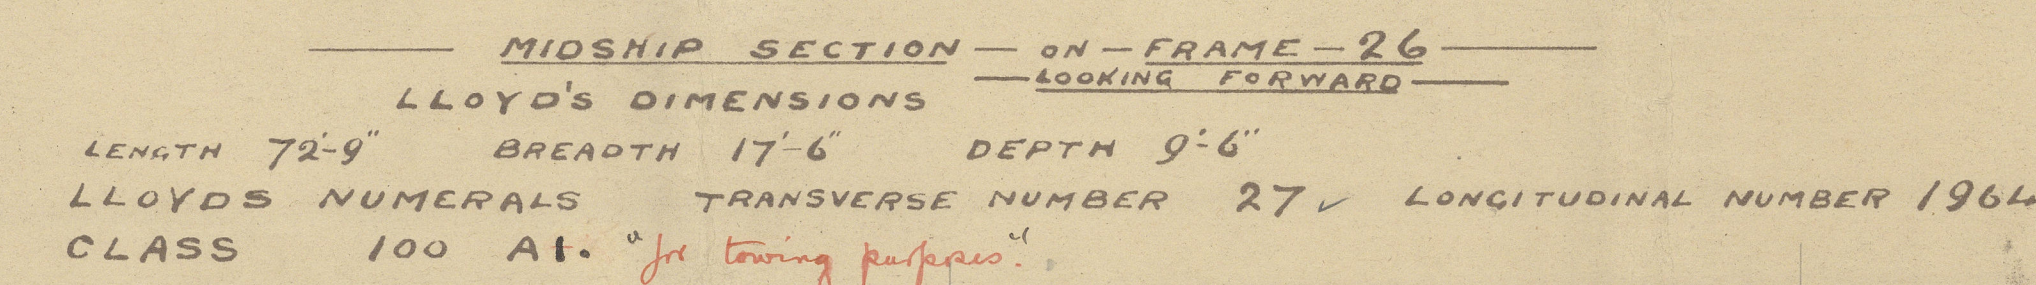 MIDSHIP SECTION — ON — FRAME — 26
— LOOKING FORWARD —
LLOYD'S DIMENSIONS
LENGTH 72'-9" BREADTH 17'-6" DEPTH 9'-6"
LLOYDS NUMERALS TRANSVERSE NUMBER 27 ✓ LONGITUDINAL NUMBER 1964
CLASS 100 A1. "for towing purposes."